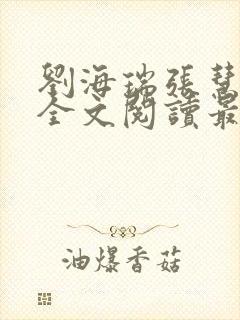 劉海瑞張慧
全文閱讀最
油爆香菇